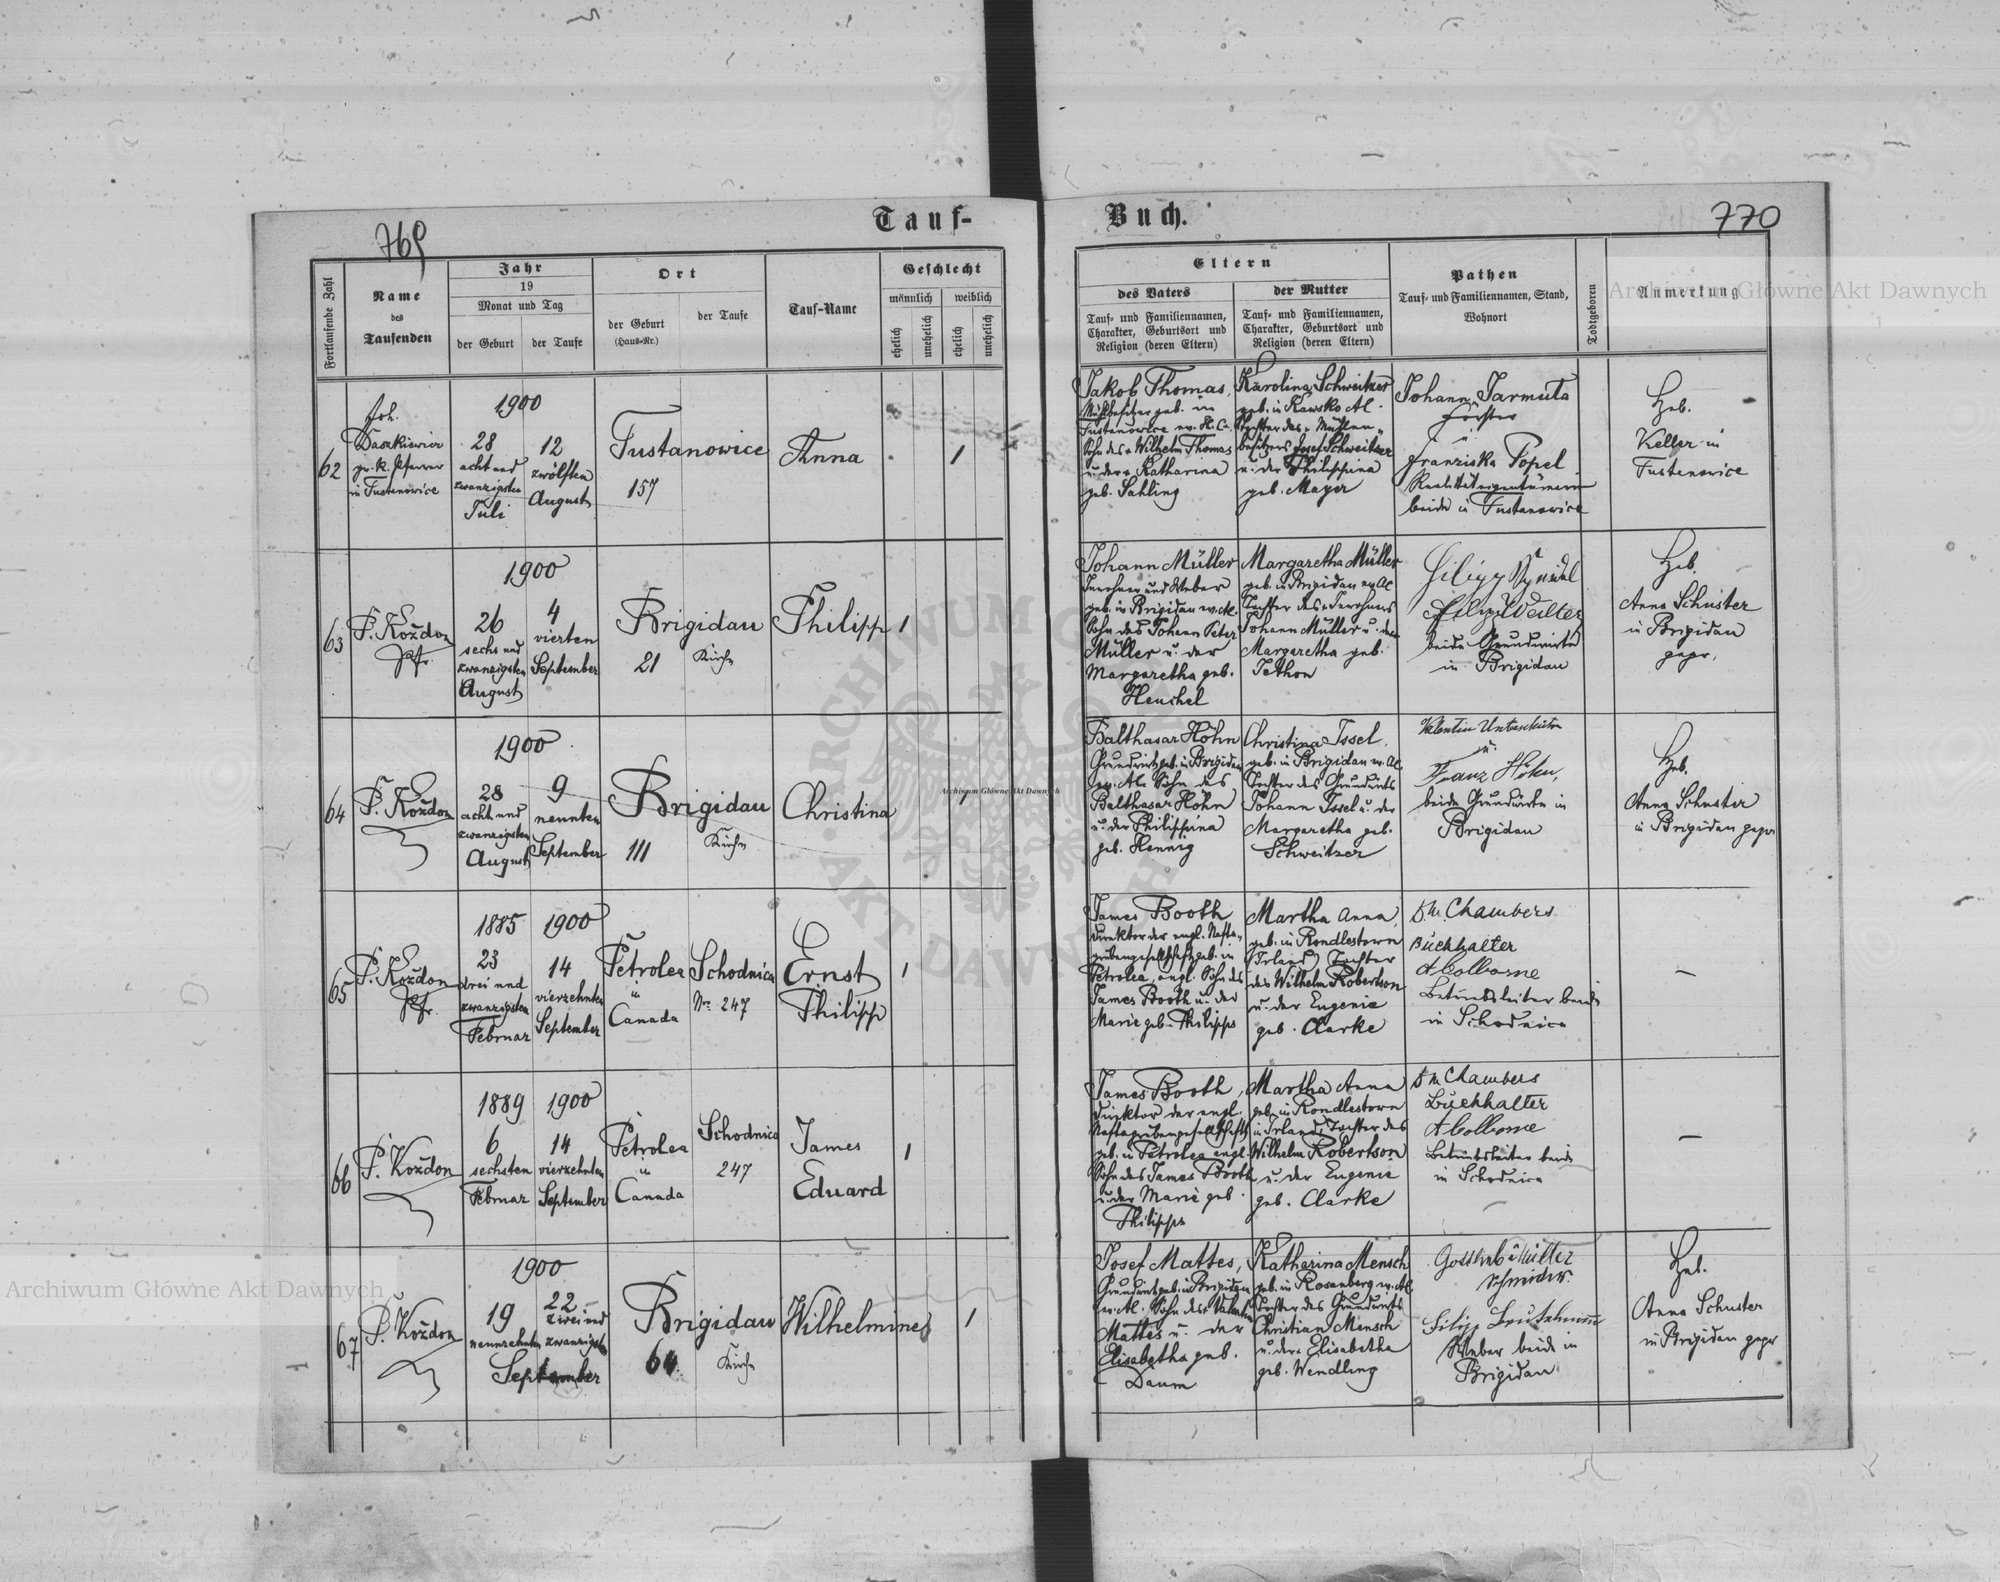 769
Tauf-
Buch.
770
Fortlaufende Zahl
Name
des
Taufenden
Jahr
19
Monat und Tag
der Geburt
der Taufe
Ort
der Geburt
(Haus-Nr.)
der Taufe
Tauf-Name
Geschlecht
männlich
weiblich
ehelich
unehelich
ehelich
unehelich
Eltern
des Vaters
Tauf- und Familiennamen,
Charakter, Geburtsort und
Religion (deren Eltern)
der Mutter
Tauf- und Familiennamen,
Charakter, Geburtsort und
Religion (deren Eltern)
Pathen
Tauf- und Familiennamen, Stand,
Wohnort
Todtgeboren
Anmerkung
62
Joh.
Daszkiewicz
gr. k. Pfarrer
in Tustanowice
1900
28
acht und
zwanzigsten
Juli
12
zwölften
August
Tustanowice
157
Anna
1
Jakob Thomas,
Mühlbesitzer geb. in
Tustanowice ev. H. C.
Sohn des Wilhelm Thomas
u. der Katharina
geb. Sahling
Karolina Schweitzer
geb. in Rawsko Al.
Tochter des Mühlen-
besitzers Josef Schweitzer
u. der Philippina
geb. Mayer
Johann Jarmuta
Förster
u.
Franziska Popel
Realitäteigentümerin
beide in Tustanowice
Heb.
Keller in
Tustanowice
63
P. Koždon
Pfr.
1900
26
sechs und
zwanzigsten
August
4
vierten
September
Brigidau
21
Kirche
Philipp
1
Johann Müller
Inwohner und Weber
geb. in Brigidau ev. Al.
Sohn des Johann Peter
Müller u. der
Margaretha geb.
Henschel
Margaretha Müller
geb. in Brigidau ev Al
Tochter des Inwohners
Johann Müller u. der
Margaretha geb.
Jethon
beide Grundwirte
in Brigidau
Heb.
Anna Schuster
in Brigidau
gepr.
64
P. Koždon
1900
28
acht und
zwanzigsten
August
9
neunten
September
Brigidau
111
Kirche
Christina
1
Balthasar Höhn
Grundwirt geb. in Brigidau
ev. Al. Sohn des
Balthasar Höhn
u. der Philippina
geb. Hennig
Christina Issel,
geb. in Brigidau ev. Al.
Tochter des Grundwirts
Johann Issel u. der
Margaretha geb.
Schweitzer
Valentin Unterschütz
u.
Franz Höhn,
beide Grundwirte in
Brigidau
Heb.
Anna Schuster
in Brigidau gepr
65
P. Koždon
Pfr.
1885
23
drei und
zwanzigsten
Februar
1900
14
vierzehnten
September
Petrolea
in
Canada
Schodnica
Nro 247
Ernst
Philipp
1
James Booth
Direktor der engl. Nafta-
grubengesellschaft geb. in
Petrolea, engl. Sohn des
James Booth u. der
Marie geb. Philipps
Martha Anna,
geb. in Rondlestown
(Irland) Tochter
des Wilhelm Robertson
u. der Eugenie
geb. Clarke
D. M. Chambers
Buchhalter
A Colborne
Betriebsleiter beide
in Schodnica
–
66
P. Koždon
1889
6
sechsten
Februar
1900
14
vierzehnten
September
Petrolea
in
Canada
Schodnica
247
James
Eduard
1
James Booth,
Direktor der engl.
Naftagrubengesellschaft
geb. in Petrolea engl.
Sohn des James Booth
u. der Marie geb.
Philipps
Martha Anna
geb. in Rondlestown
in Irland, Tochter des
Wilhelm Robertson
u. der Eugenie
geb. Clarke
D M Chambers
Buchhalter
A Colborne
Betriebsleiter beide
in Schodnica
–
67
P. Koždon
1900
19
neunzehnten
22
zwei und
zwanzigsten
September
Brigidau
64
Kirche
Wilhelmine
1
Josef Mattes,
Grundwirt geb. in Brigidau
ev. Al. Sohn des Valentin
Mattes u. der
Elisabetha geb.
Daum
Katharina Mensch
geb. in Rosenberg ev. Al.
Tochter des Grundwirts
Christian Mensch
u. der Elisabetha
geb. Wendling
Gottlieb Müller
Schneider.
Weber beide in
Brigidau
Heb.
Anna Schuster
in Brigidau gepr
Archiwum Główne Akt Dawnych
Archiwum Główne Akt Dawnych
Archiwum Główne Akt Dawnych
ARCHIWUM GŁÓWNE
AKT DAWNYCH